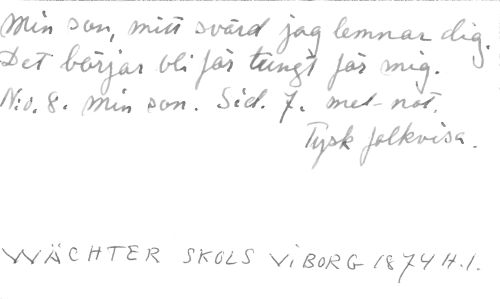 Min son, mitt svärd jag lemnar dig.
Det börjar bli för tungt för mig.
N:o. 8. Min son. Sid. 7. med not.
Tysk folkvisa.
WÄCHTER SKOLS VIBORG 1874 H.1.